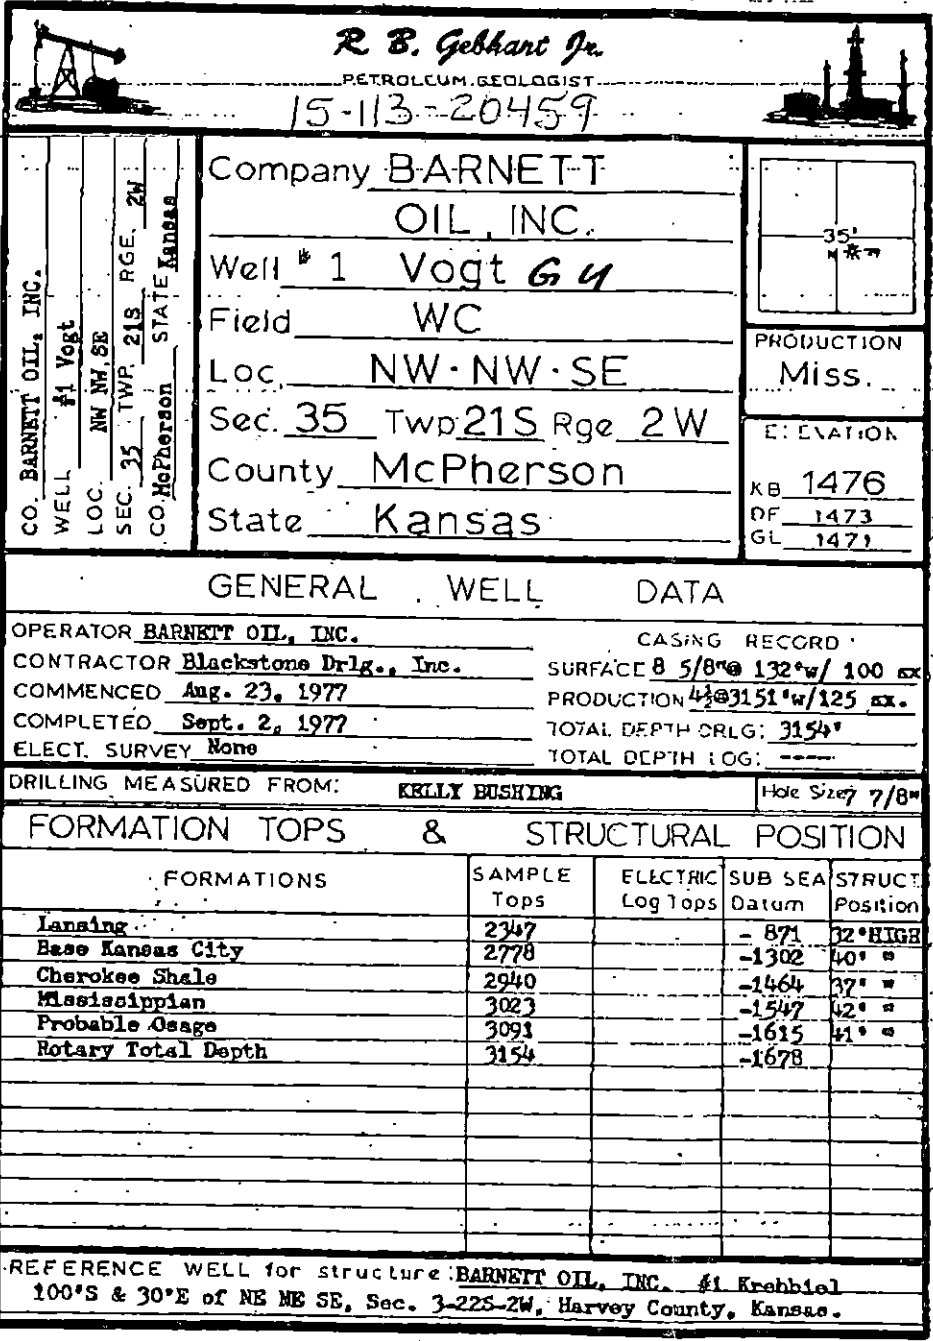 R. B. Gebhart Jr.
PETROLEUM GEOLOGIST
15-113-20459
CO. BARNETT OIL, INC.
WELL #1 Vogt
LOC. NW NW SE
SEC. 35 TWP. 21S RGE. 2W
CO. McPherson STATE Kansas
Company BARNETT
OIL, INC.
Well # 1 Vogt
Field WC
Loc. NW·NW·SE
Sec. 35 Twp 21S Rge 2W
County McPherson
State Kansas
35'
PRODUCTION
Miss.
ELEVATION
KB 1476
DF 1473
GL 1471
GENERAL WELL DATA
OPERATOR BARNETT OIL, INC.
CONTRACTOR Blackstone Drlg., Inc.
COMMENCED Aug. 23, 1977
COMPLETED Sept. 2, 1977
ELECT. SURVEY None
CASING RECORD
SURFACE 8 5/8"@ 132'w/ 100 sx
PRODUCTION 4½@3151'w/125 sx.
TOTAL DEPTH DRLG: 3154'
TOTAL DEPTH LOG: ----
DRILLING MEASURED FROM: KELLY BUSHING Hole Size 7 7/8"
FORMATION TOPS & STRUCTURAL POSITION
FORMATIONS SAMPLE Tops ELECTRIC Log Tops SUB SEA Datum STRUCT. Position
Lansing 2347 - 871 32'HIGH
Base Kansas City 2778 -1302 40' "
Cherokee Shale 2940 -1464 37' "
Mississippian 3023 -1547 42' "
Probable Osage 3091 -1615 41' "
Rotary Total Depth 3154 -1678
REFERENCE WELL for structure: BARNETT OIL, INC. #1 Krehbiel
100'S & 30'E of NE NE SE, Sec. 3-22S-2W, Harvey County, Kansas.